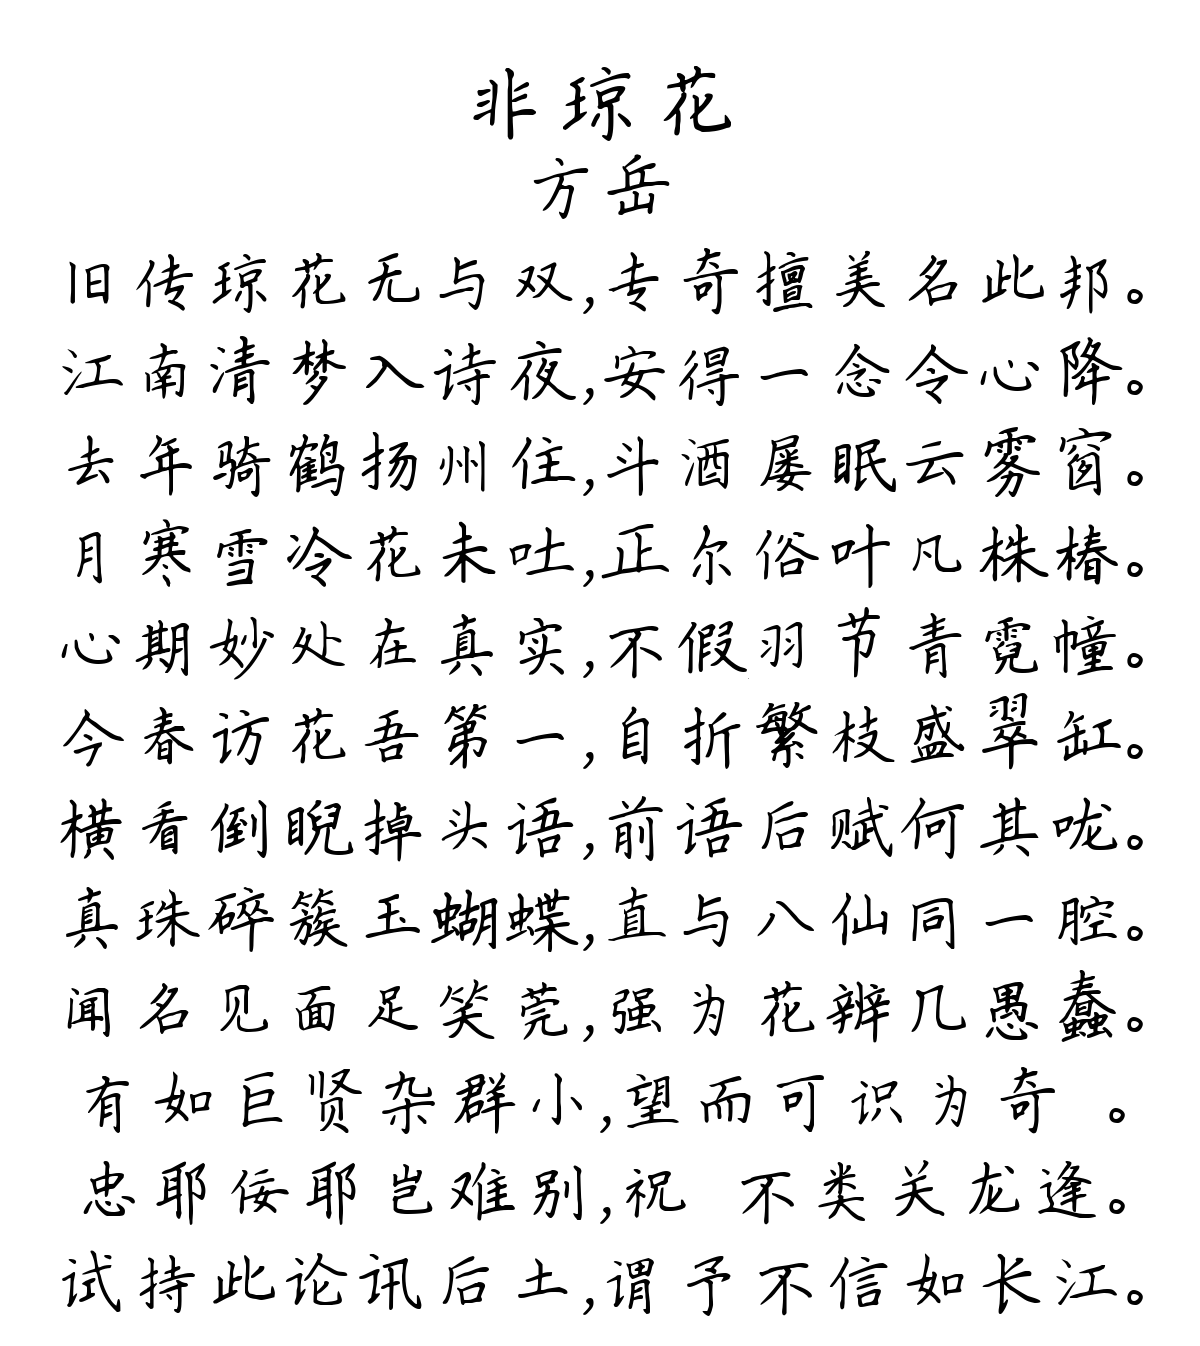 非琼花
方岳
旧传琼花无与双,专奇擅美名此邦。
江南清梦入诗夜,安得一念令心降。
去年骑鹤扬州住,斗酒屡眠云雾窗。
月寒雪冷花未吐,正尔俗叶凡株椿。
心期妙处在真实,不假羽节青霓幢。
今春访花吾第一,自折繁枝盛翠缸。
横看倒睨掉头语,前语后赋何其咙。
真珠碎簇玉蝴蝶,直与八仙同一腔。
闻名见面足笑莞,强为花辨几愚蠢。
有如巨贤杂群小,望而可识为奇 。
忠耶佞耶岂难别,祝 不类关龙逢。
试持此论讯后土,谓予不信如长江。